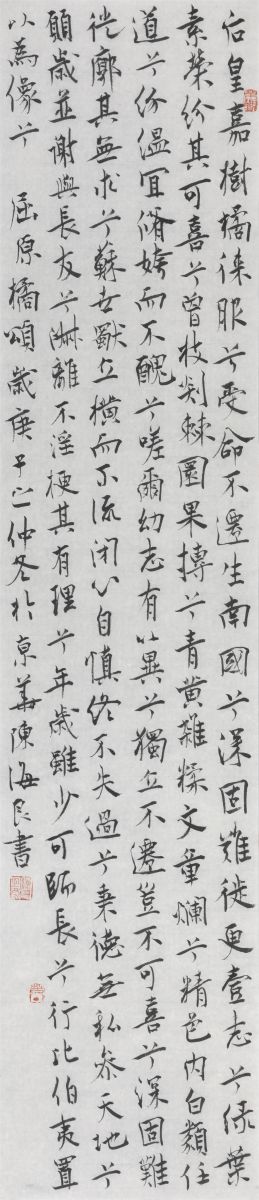 后皇嘉樹橘徠服兮受命不遷生南國兮深固難徙更壹志兮緑葉
素榮紛其可喜兮曾枝剡棘圜果摶兮青黄雜糅文章爛兮精色内白類任
道兮紛緼宜脩姱而不醜兮嗟爾幼志有以異兮獨立不遷豈不可喜兮深固難
徙廓其無求兮蘇世獨立横而不流閉心自慎終不失過兮秉德無私參天地兮
願歲並謝與長友兮淋離不淫梗其有理兮年歲雖少可師長兮行比伯夷置
以為像兮 屈原橘頌歲庚子之仲冬於京華陳海良書